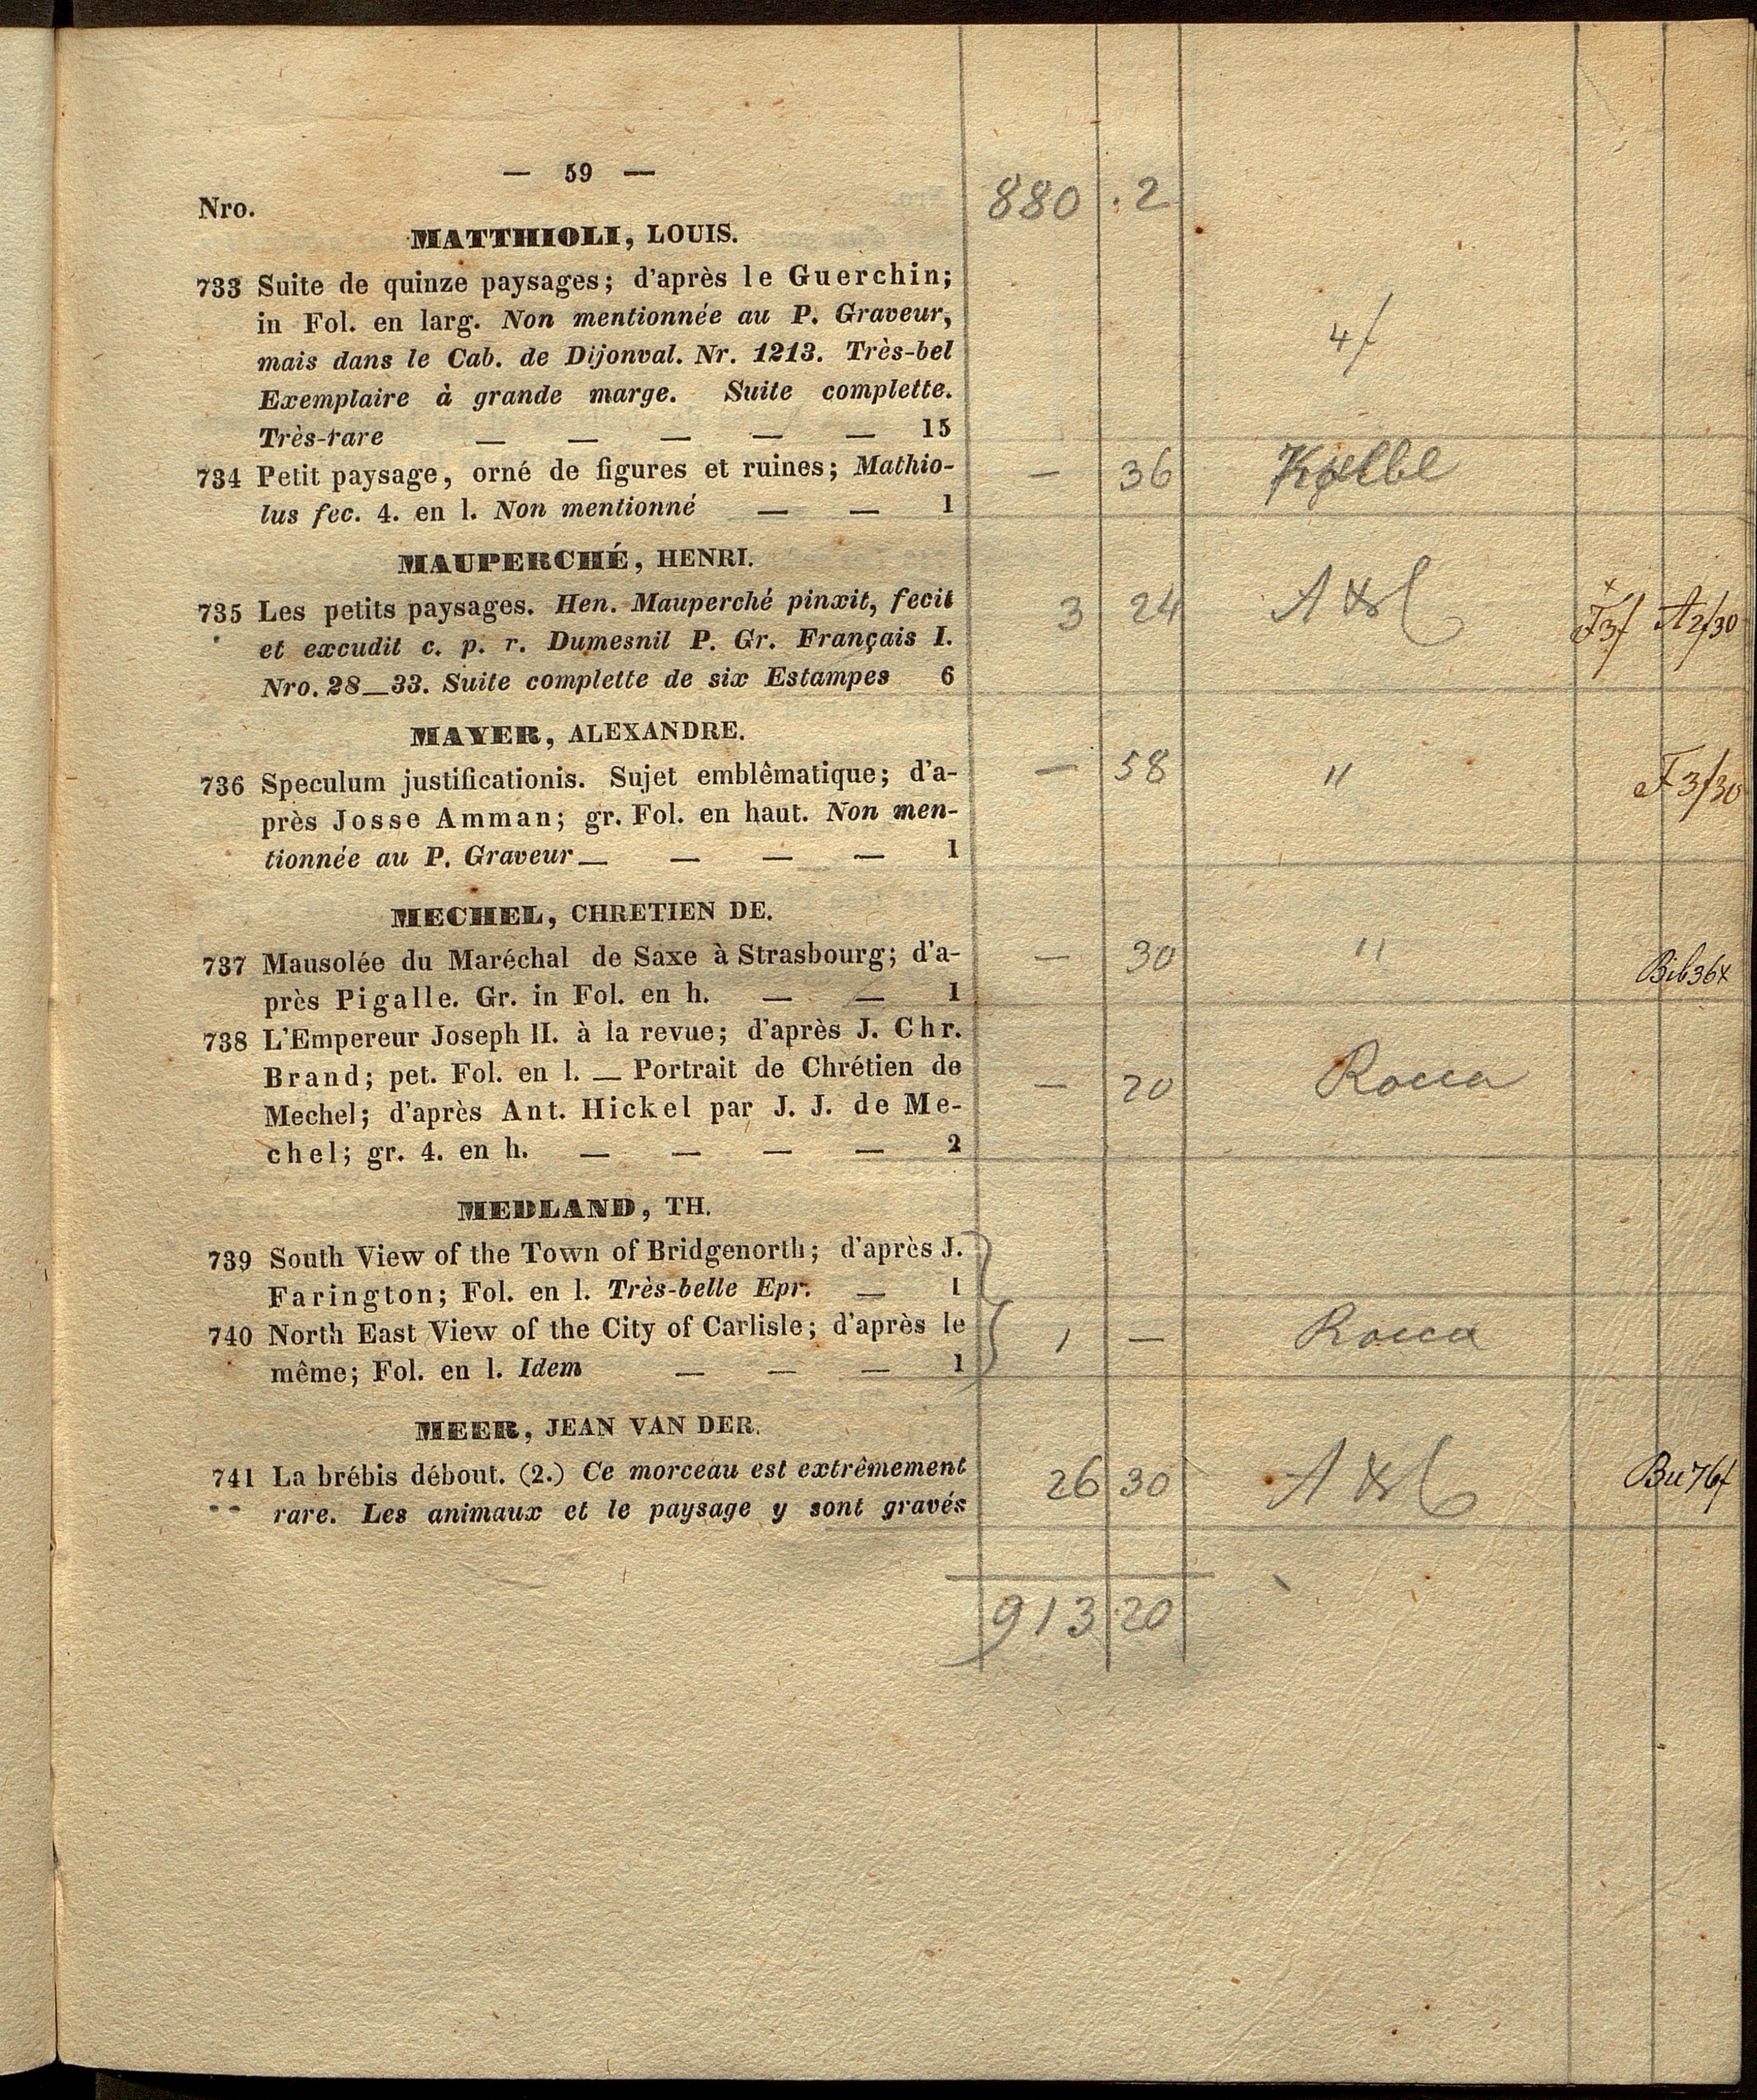 — 59 —
880 . 2
Nro.
MATTHIOLI, LOUIS.
733 Suite de quinze paysages; d'après le Guerchin;
in Fol. en larg. Non mentionnée au P. Graveur,
mais dans le Cab. de Dijonval. Nr. 1213. Très-bel
Exemplaire à grande marge. Suite complette.
Très-rare — — — — — 15
4f
734 Petit paysage, orné de figures et ruines; Mathio-
lus fec. 4. en l. Non mentionné — — 1
— 36
MAUPERCHÉ, HENRI.
735 Les petits paysages. Hen. Mauperché pinxit, fecit
et excudit c. p. r. Dumesnil P. Gr. Français I.
Nro. 28—33. Suite complette de six Estampes 6
3 24 F3f A2f30
MAYER, ALEXANDRE.
736 Speculum justificationis. Sujet emblêmatique; d'a-
près Josse Amman; gr. Fol. en haut. Non men-
tionnée au P. Graveur — — — — 1
— 58 " F3f30
MECHEL, CHRETIEN DE.
737 Mausolée du Maréchal de Saxe à Strasbourg; d'a-
près Pigalle. Gr. in Fol. en h. — — 1
— 30 " Bib36x
738 L'Empereur Joseph II. à la revue; d'après J. Chr.
Brand; pet. Fol. en l. — Portrait de Chrétien de
Mechel; d'après Ant. Hickel par J. J. de Me-
chel; gr. 4. en h. — — — — 2
— 20 Rocca
MEDLAND, TH.
739 South View of the Town of Bridgenorth; d'après J.
Farington; Fol. en l. Très-belle Epr. — 1
740 North East View of the City of Carlisle; d'après le
même; Fol. en l. Idem — — — 1
1 — Rocca
MEER, JEAN VAN DER.
741 La brébis débout. (2.) Ce morceau est extrêmement
rare. Les animaux et le paysage y sont gravés
26 30 Bu76f
913 20